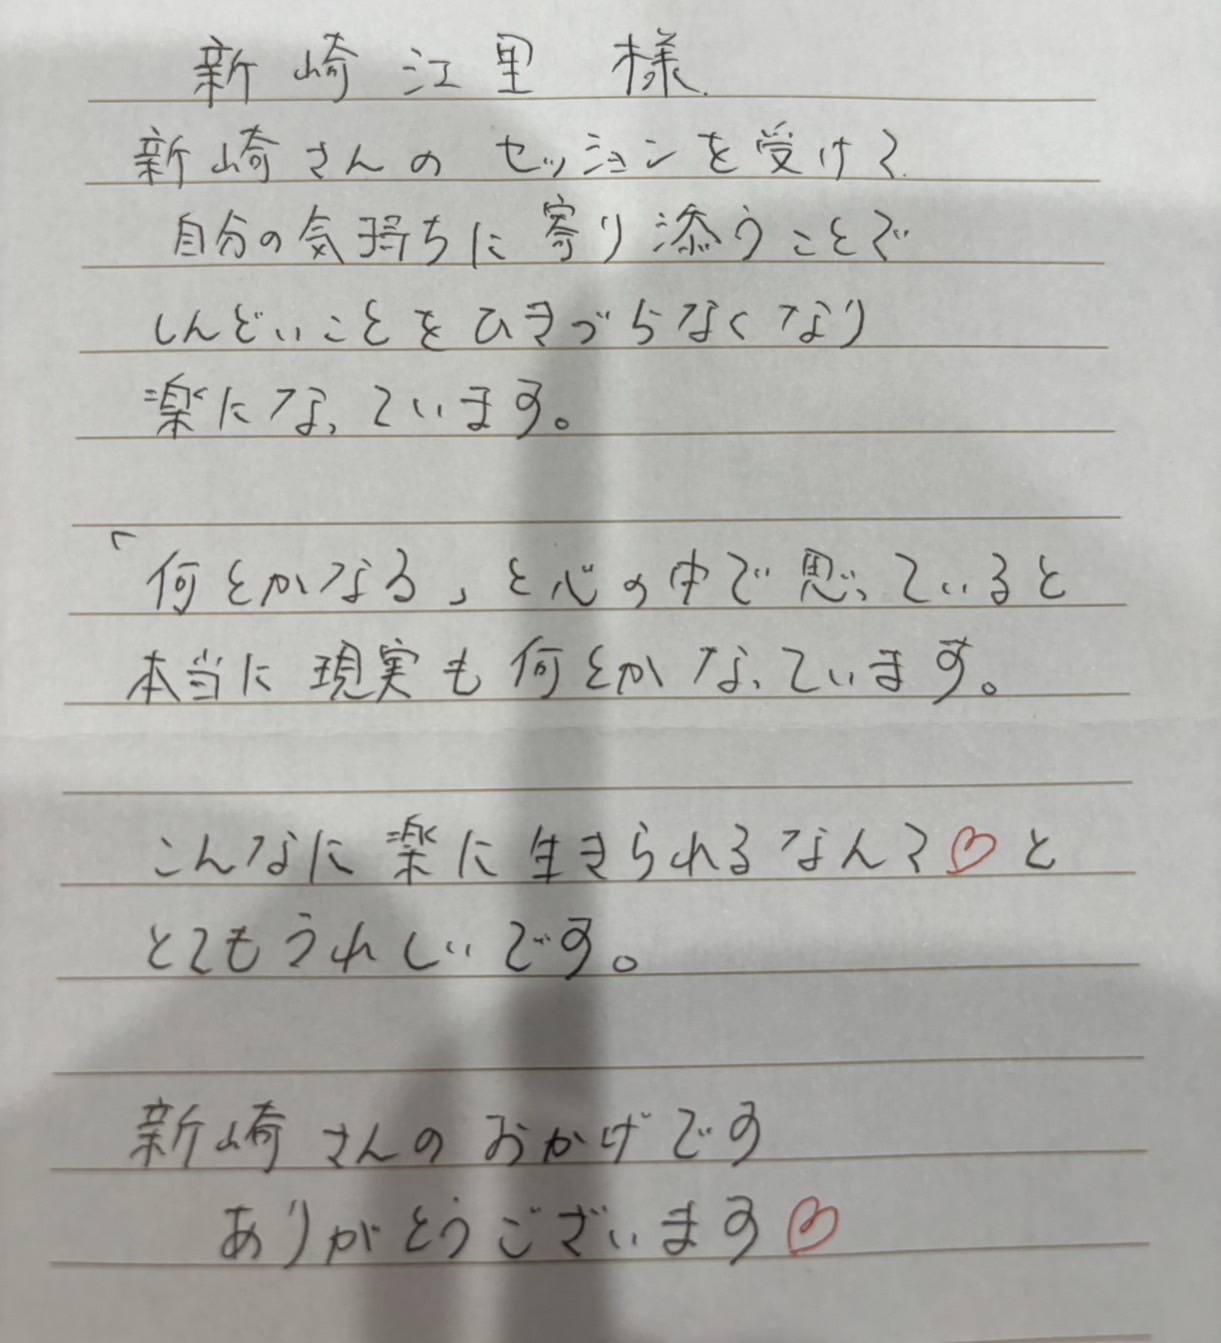 新崎江里様
新崎さんのセッションを受けて
自分の気持ちに寄り添うことで
しんどいことをひきづらなくなり
楽になっています。
「何とかなる」と心の中で思っていると
本当に現実も何とかなっています。
こんなに楽に生きられるなんて♡と
とてもうれしいです。
新崎さんのおかげです
ありがとうございます♡